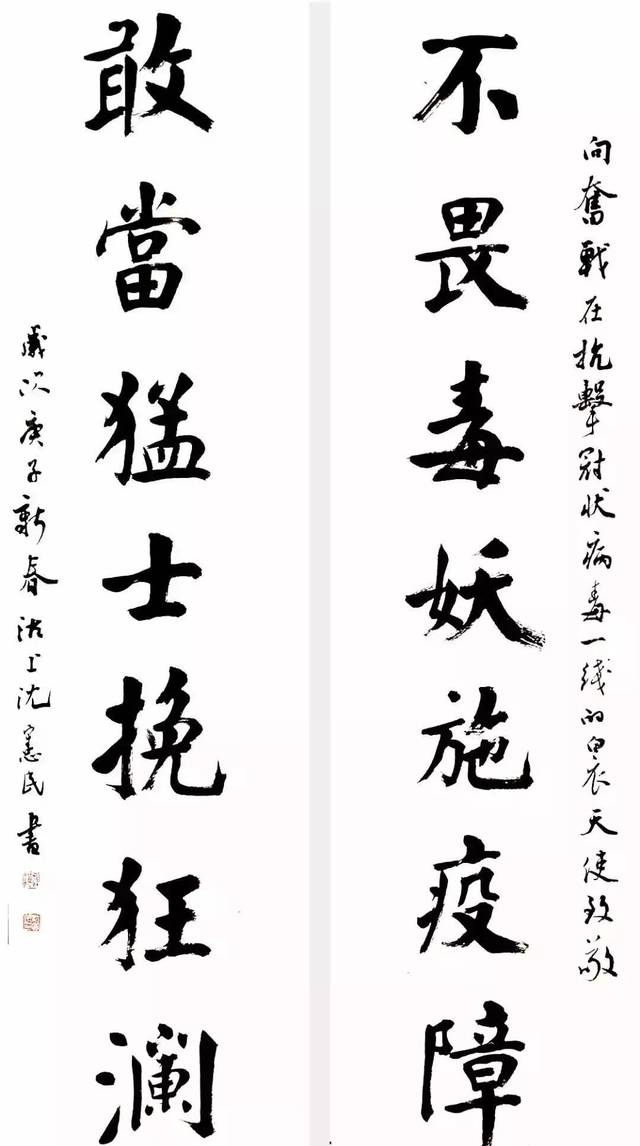 向奮戰在抗擊冠状病毒一线的白衣天使致敬
不畏毒妖施疫障
敢當猛士挽狂澜
歲次庚子新春沽上沈憲民書